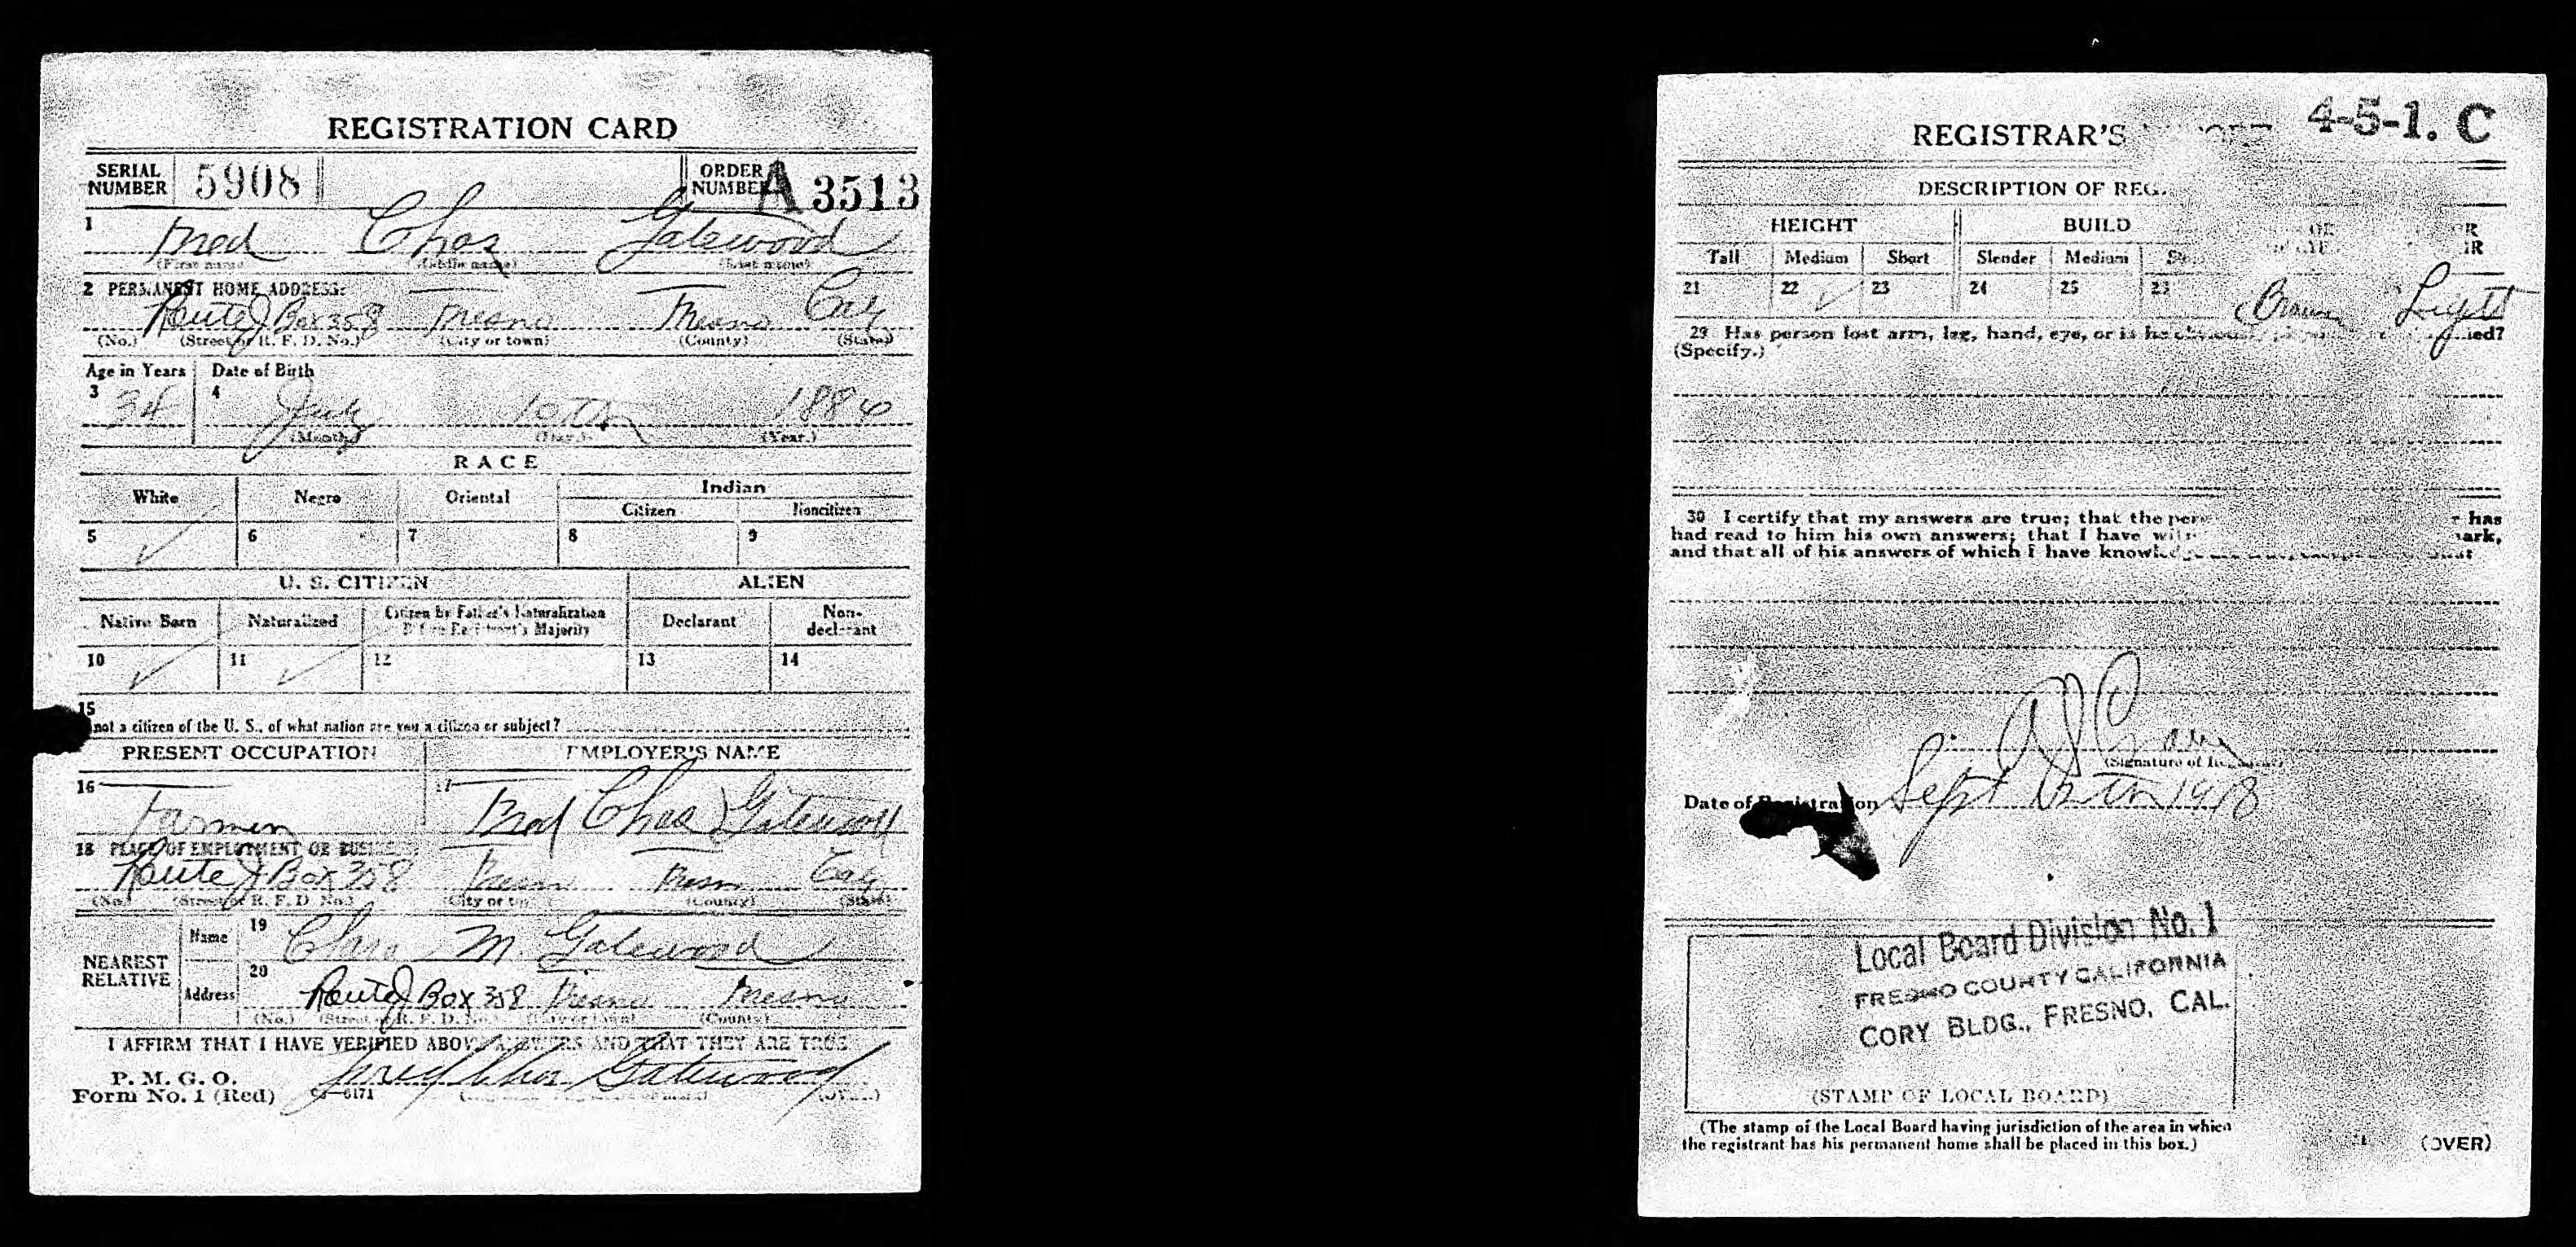 REGISTRATION CARD
SERIAL NUMBER 5908 ORDER NUMBER A 3513
1 Fred Chas Gatewood
(First name) (Middle name) (Last name)
2 PERMANENT HOME ADDRESS:
Route J Box 358 Fresno Fresno Cal
(No.) (Street or R. F. D. No.) (City or town) (County) (State)
Age in Years Date of Birth
3 34 4 July 10th 1884
(Month.) (Day.) (Year.)
RACE
White Negro Oriental Indian
Citizen Noncitizen
5 ✓ 6 7 8 9
U. S. CITIZEN ALIEN
Native Born Naturalized Citizen by Father's Naturalization Before Registrant's Majority Declarant Non-declarant
10 ✓ 11 ✓ 12 13 14
15
not a citizen of the U. S., of what nation are you a citizen or subject?
PRESENT OCCUPATION EMPLOYER'S NAME
16 Farmer 17 Fred Chas Gatewood
18 PLACE OF EMPLOYMENT OR BUSINESS:
Route J Box 358 Fresno Fresno Cal
(No.) (Street or R. F. D. No.) (City or town) (County) (State)
NEAREST RELATIVE
Name 19 Chas M. Gatewood
Address 20 Route J Box 358 Fresno Fresno
(No.) (Street or R. F. D. No.) (City or town) (County)
I AFFIRM THAT I HAVE VERIFIED ABOVE ANSWERS AND THAT THEY ARE TRUE
P. M. G. O.
Form No. 1 (Red) 03—6171 Fred Chas Gatewood
REGISTRAR'S 4-5-1. C
DESCRIPTION OF REG.
HEIGHT BUILD
Tall Medium Short Slender Medium
21 22 ✓ 23 24 25 Brown Light
29 Has person lost arm, leg, hand, eye, or is he
(Specify.)
30 I certify that my answers are true; that the has
had read to him his own answers; that I have
and that all of his answers of which I have
(Signature of Registrar)
Date of Registration Sept 12th 1918
Local Board Division No. 1
FRESNO COUNTY CALIFORNIA
CORY BLDG., FRESNO, CAL.
(STAMP OF LOCAL BOARD)
(The stamp of the Local Board having jurisdiction of the area in which
the registrant has his permanent home shall be placed in this box.)
(OVER)